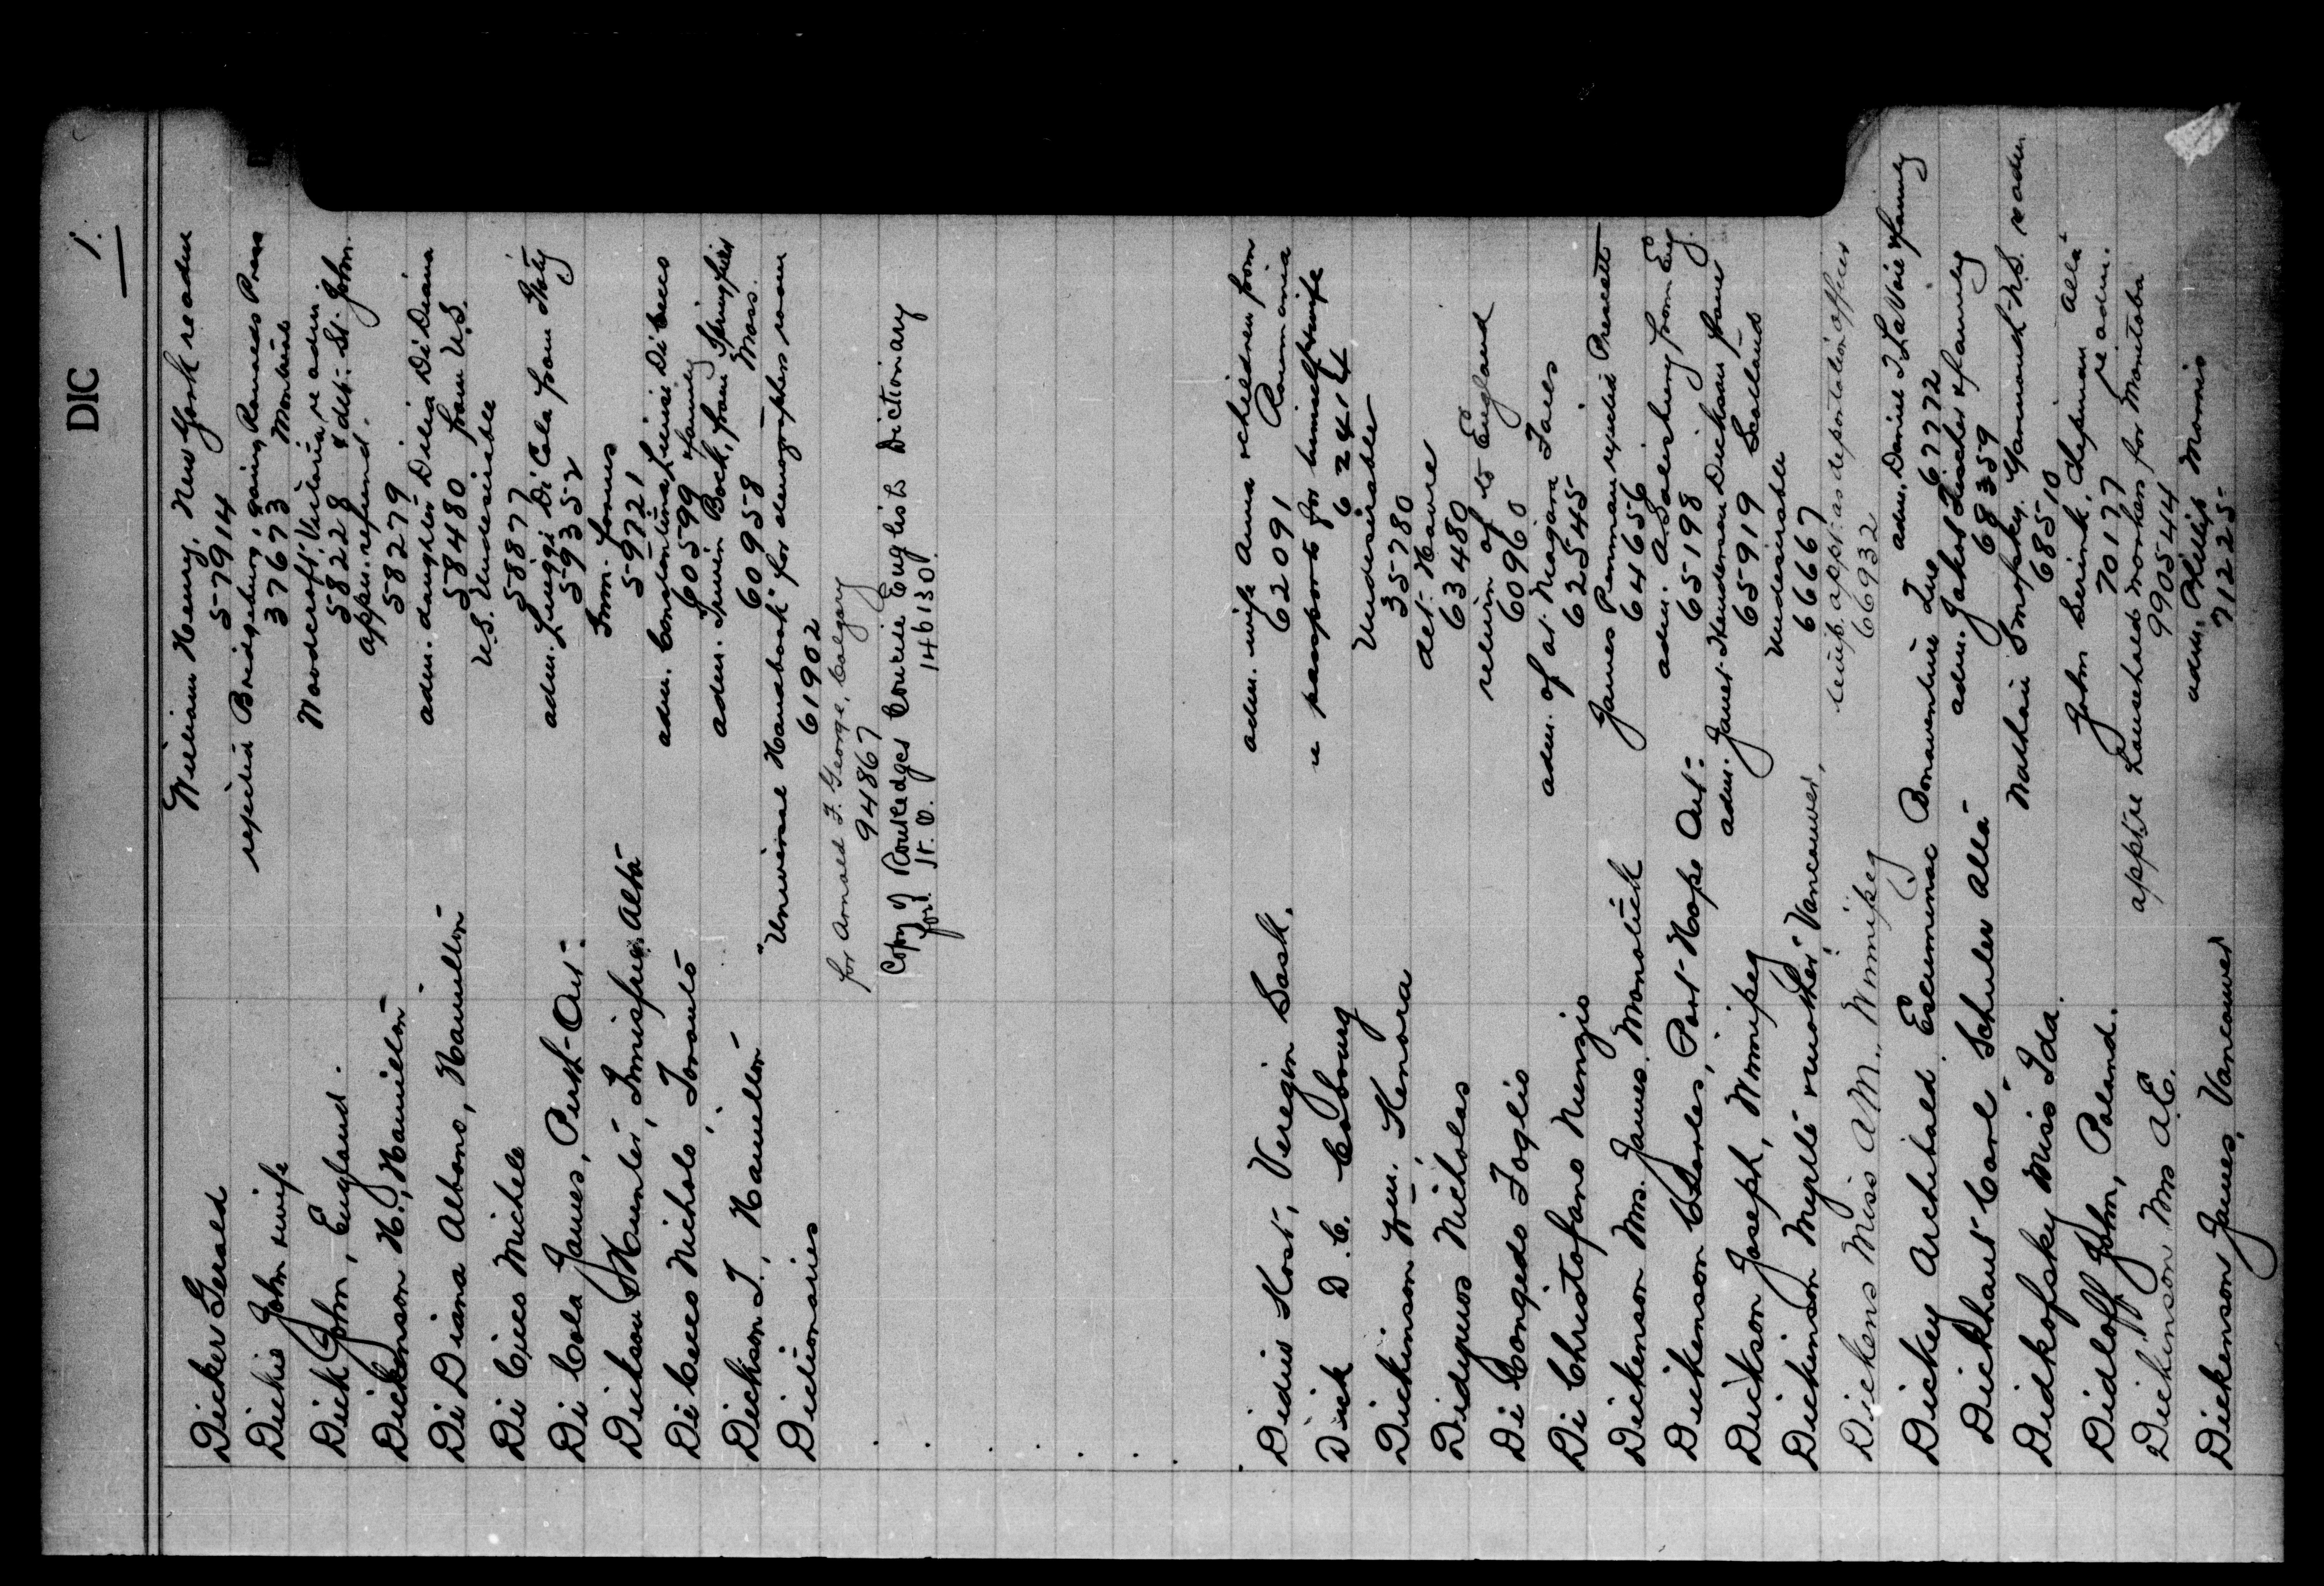 DIC
1.
Dicker Gerald William Henry, New York readm
57914
Dickie John & wife rejected Bridgeburg, going Ramseys Press
37673 Montreal
Dick John, England. Woodcroft, Victoria, re adm.
58228 & det. St. John.
Dickenson H., Hamilton appn. refund.
58279
Di Diana Albano, Hamilton adm. daughter Dilia Di Diana
58480 from U.S.
Di Cicco Michele U.S. Undesirable
58877
Di Cola James, Perth Ont. adm. Luiggi Di Cola from Italy
59352
Dickson Hunter, Innisfree, Alta Imm. forms
59721
Di Cecco Nicholo, Toronto adm. Constantina, Luisi Di Cecco
60599 & family
Dickson T., Hamilton adm. Irwin Bock, from Springfield
60958 Mass.
Dictionaries "Universal Handbook" for stenographers room
61902
for Arnold F. George, Calgary
94867
Copy of Routledges Courié English Dictionary
for H.O. 146130
Didur Kost, Veregin Sask. adm. wife Anna & children from
62091 Roumania
Dick D. C. Cobourg re passports for himself & wife
62414
Dickinson Wm. Kenora Undesirable
35780
Didymos Nicholas det. Havre
63480
Di Congedo Foglio return of to England
60960
Di Christofano Nunzio adm. of at Niagara Falls
62545
Dickenson Mrs. James. Monolith James Penman rejected Prescott
64656
Dickenson Charles, Port Hope Ont. adm. A. Salisbury from Eng.
65198
Dickson Joseph, Winnipeg adm. Janet Henderson Dickson fam
65919 Scotland
Dickinson Myrtle & mother, Vancouver, Undesirable
66667
Dickens Miss A M., Winnipeg temp. appt. as deportation officer
66932
Dickey Archibald Escuminac Bonaventure Que adm. Daniel J. LaVoie & family
67772
Dickhaut Carl Schuler Alta adm. Jakob Fischer & family
68359
Didkofsky Miss Ida. Nathan Smofsky. Yarmouth N.S. readm.
68510
Didloff John, Poland. John Serink, Chipman Alta
70177 re adm.
Dickinson Mrs A.E. app re household workers for Manitoba
990544
Dickenson James, Vancouver adm. Phillip Morris
71225